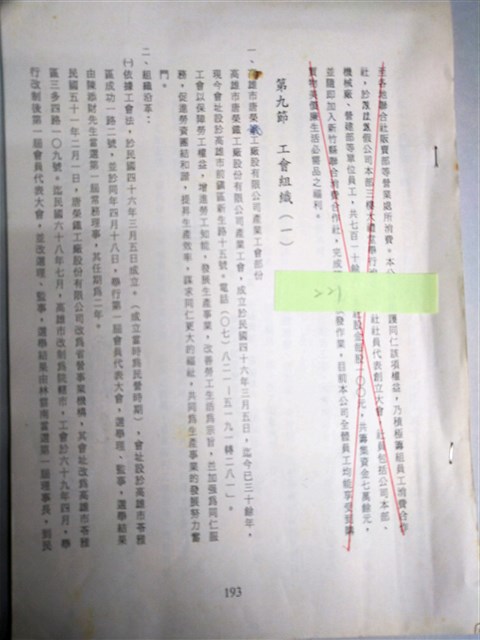 至各地聯合社販賣部等營業處所消費。本公
護同仁該項權益，乃積極籌組員工消費合作
社，於
公司本部三樓大禮堂舉行
社社員代表創立大會，社員包括公司本部、
機械廠、營建部等單位員工，共七百一十餘
社股金每股一〇〇元，共籌集資金七萬餘元，
並隨即加入新竹縣聯合消費合作社，完成
發作業，目前本公司全體員工均能享受選購
貨物美價廉生活必需品之福利。
221
第九節 工會組織（一）
一、高雄市唐榮鐵工廠股份有限公司產業工會部份
高雄市唐榮鐵工廠股份有限公司產業工會，成立於民國四十六年三月五日，迄今已三十餘年，
現今會址設於高雄市前鎮區新生路十五號。電話（〇七）八二一一五一九一轉二八一」。
工會以保障勞工權益，增進勞工知能，發展生產事業，改善勞工生活為宗旨，並加強為同仁服
務，促進勞資團結和諧，提昇生產效率，謀求同仁更大的福祉，共同為生產事業的發展努力奮
鬥。
二、組織沿革：
㈠依據工會法，於民國四十六年三月五日成立。（成立當時為民營時期），會址設於高雄市苓雅
區成功一路二號，並於同年四月十八日，舉行第一屆會員代表大會，選舉理、監事，選舉結果
由陳添財先生當選第一屆常務理事，其任期為二年。
民國五十一年二月一日，唐榮鐵工廠股份有限公司改為省營事業機構，其會址改為高雄市苓雅
區三多四路一〇九號。迄民國六十八年七月，高雄市改制為院轄市，工會於六十九年四月，舉
行改制後第一屆會員代表大會，並改選理、監事，選舉結果由林碧南當選第一屆理事長，到民
193